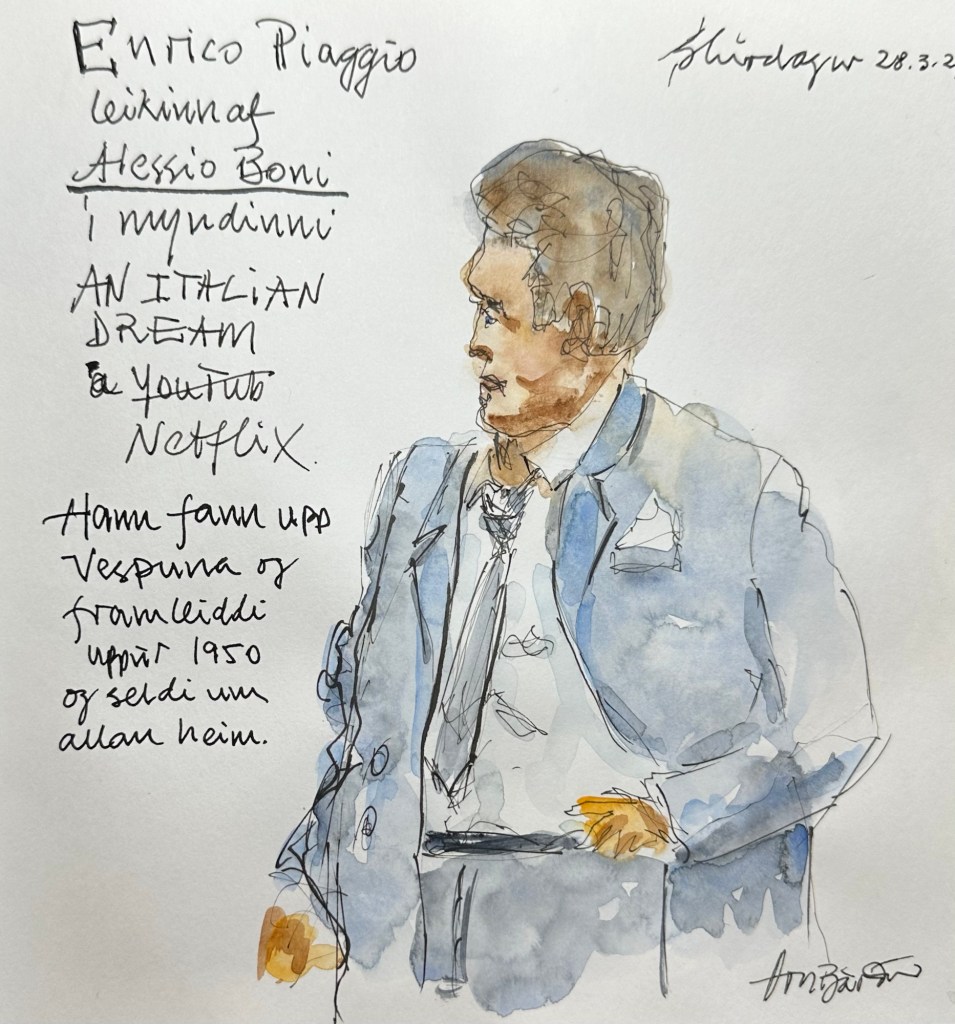 Enrico Piaggio
Skírdagur 28.3.2
leikinn af
Alessio Boni
í myndinni
AN ITALiAN
DREAM
á YouTub
Netflix.
Hann fann upp
Vespuna og
framleiddi
uppúr 1950
og seldi um
allan heim.